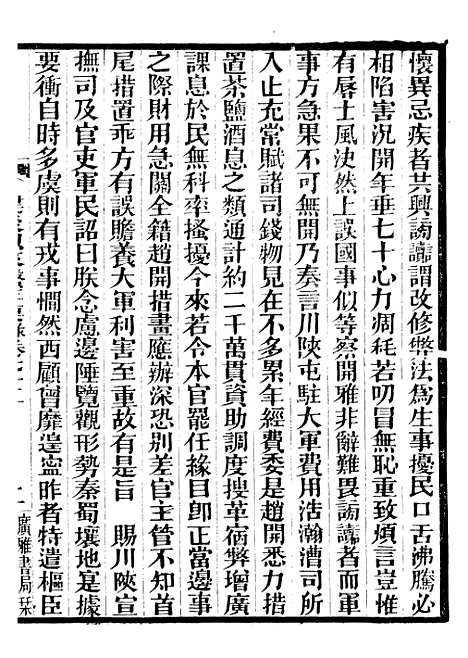 懷異忌疾者共興謗讟謂改修弊法為生事擾民口舌沸騰必
相陷害況開年垂七十心力凋耗若叨冒無恥重致煩言豈惟
有辱士風決然上誤國事似等察開雅非辭難畏謗讟者而軍
事方急果不可無開乃奏言川陝屯駐大軍費用浩瀚漕司所
入止充常賦諸司錢物見在不多累年經費委是趙開悉力措
置茶鹽酒息之類通計約二千萬貫資助調度搜革宿弊增廣
課息於民無科率搔擾今來若令本官罷任緣目卽正當邊事
之際財用急闕全籍趙開措畫應辦深恐別差官主管不知首
尾措置乖方有誤贍養大軍利害至重故有是旨　賜川陝宣
撫司及官吏軍民詔曰朕念慮邊陲覽觀形勢秦蜀壤地寔據
要衝自時多虞則有戎事惘然西顧曾靡遑寍昨者特遣樞臣
廣雅書局栞